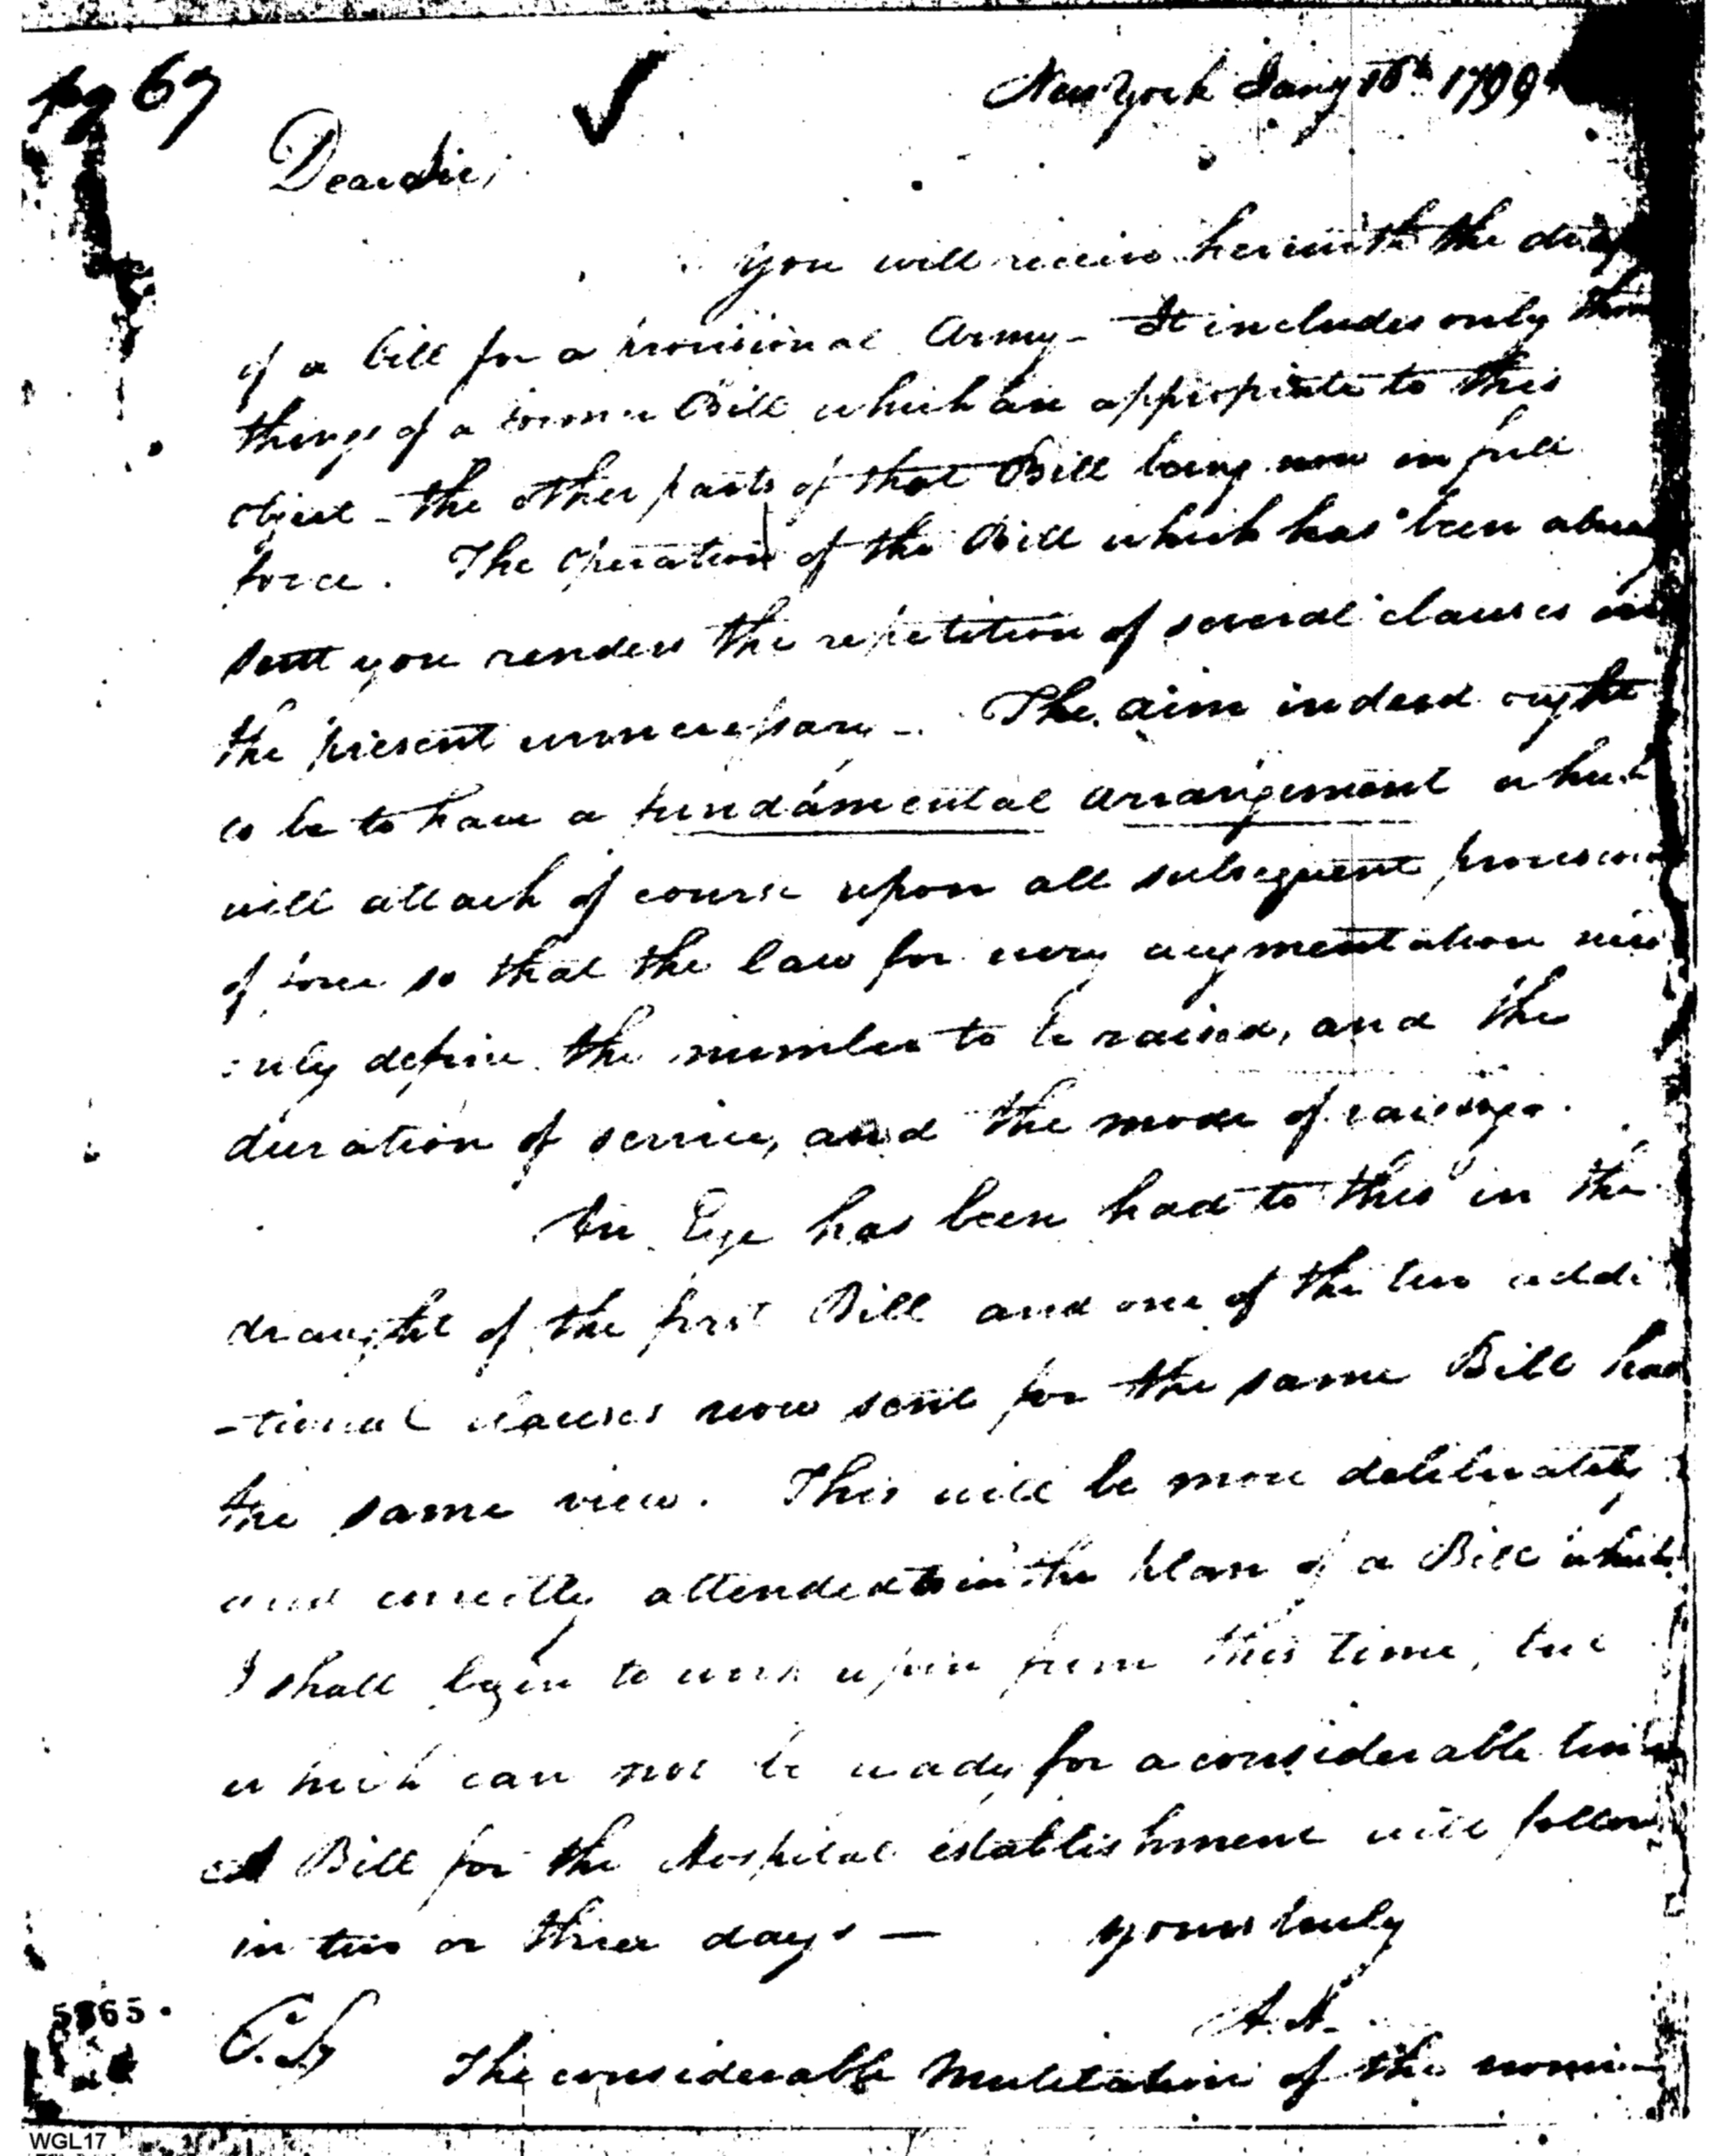 67
New York Jany 16th 1799
Dear Sir,
You will receive herewith the draft
of a bill for a provisional Army - It includes only those
things of a former Bill which are appropriate to this
object - the other parts of that Bill being now in full
force. The operation of the Bill which has been already
sent you renders the repetition of several clauses in
the present unnecessary -. The aim indeed ought
to be to have a fundamental arrangement which
will attach of course upon all subsequent provisions
of force so that the law for every augmentation need
only define the number to be raised, and the
duration of service, and the mode of raising.
An Eye has been had to this in the
draught of the first Bill and one of the two addi
-tional clauses now sent for the same Bill has
the same view. This will be more deliberately
and correctly attended to in the plan of a Bill which
I shall begin to work upon from this time, but
which can not be ready for a considerable time
A Bill for the Hospital establishment will follow
in two or three days — yours truly
A. H.
The considerable mutilation of the
WGL17